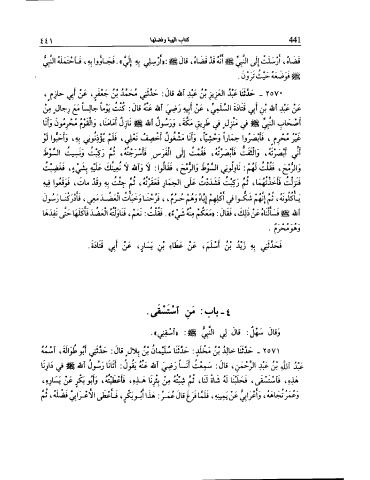 ٤٤١ كتاب الهبة وفضلها 441
قضاه، أرسلت إلى النبي ﷺ أنه قد قضاه، قال: «أرسلي به إلي». فجاؤوا به، فاحتمله النبي
ﷺ فوضعه حيث ترون.
٢٥٧٠ - حدثنا عبد العزيز بن عبد الله قال: حدثني محمد بن جعفر، عن أبي حازم،
عن عبد الله بن أبي قتادة السلمي، عن أبيه رضي الله عنه قال: كنت يوماً جالساً مع رجال من
أصحاب النبي ﷺ في منزل في طريق مكة، ورسول الله ﷺ نازل أمامنا، والقوم محرمون وأنا
غير محرم، فأبصروا حماراً وحشياً، وأنا مشغول أخصف نعلي، فلم يؤذنوني به، وأحبوا لو
أني أبصرته، والتفت فأبصرته، فقمت إلى الفرس فأسرجته، ثم ركبت ونسيت السوط
والرمح، فقلت لهم: ناولوني السوط والرمح، فقالوا: لا والله لا نعينك عليه بشيء، فغضبت
فنزلت فأخذتهما، ثم ركبت فشددت على الحمار فعقرته، ثم جئت به وقد مات، فوقعوا فيه
يأكلونه، ثم إنهم شكوا في أكلهم إياه وهم حرم، فرحنا وخبأت العضد معي، فأدركنا رسول
الله ﷺ فسألناه عن ذلك، فقال: «معكم منه شيء؟». فقلت: نعم، فناولته العضد فأكلها حتى نفدها
وهو محرم.
فحدثني به زيد بن أسلم، عن عطاء بن يسار، عن أبي قتادة.
٤ - باب: من استسقى.
وقال سهل: قال لي النبي ﷺ: «اسقني».
٢٥٧١ - حدثنا خالد بن مخلد: حدثنا سليمان بن بلال قال: حدثني أبو طوالة، اسمه
عبد الله بن عبد الرحمن، قال: سمعت أنساً رضي الله عنه يقول: أتانا رسول الله ﷺ في دارنا
هذه، فاستسقى، فحلبنا له شاة لنا، ثم شبته من بئرنا هذه، فأعطيته، وأبو بكر عن يساره،
وعمر تجاهه، وأعرابي عن يمينه، فلما فرغ قال عمر: هذا أبو بكر، فأعطى الأعرابي فضله، ثم